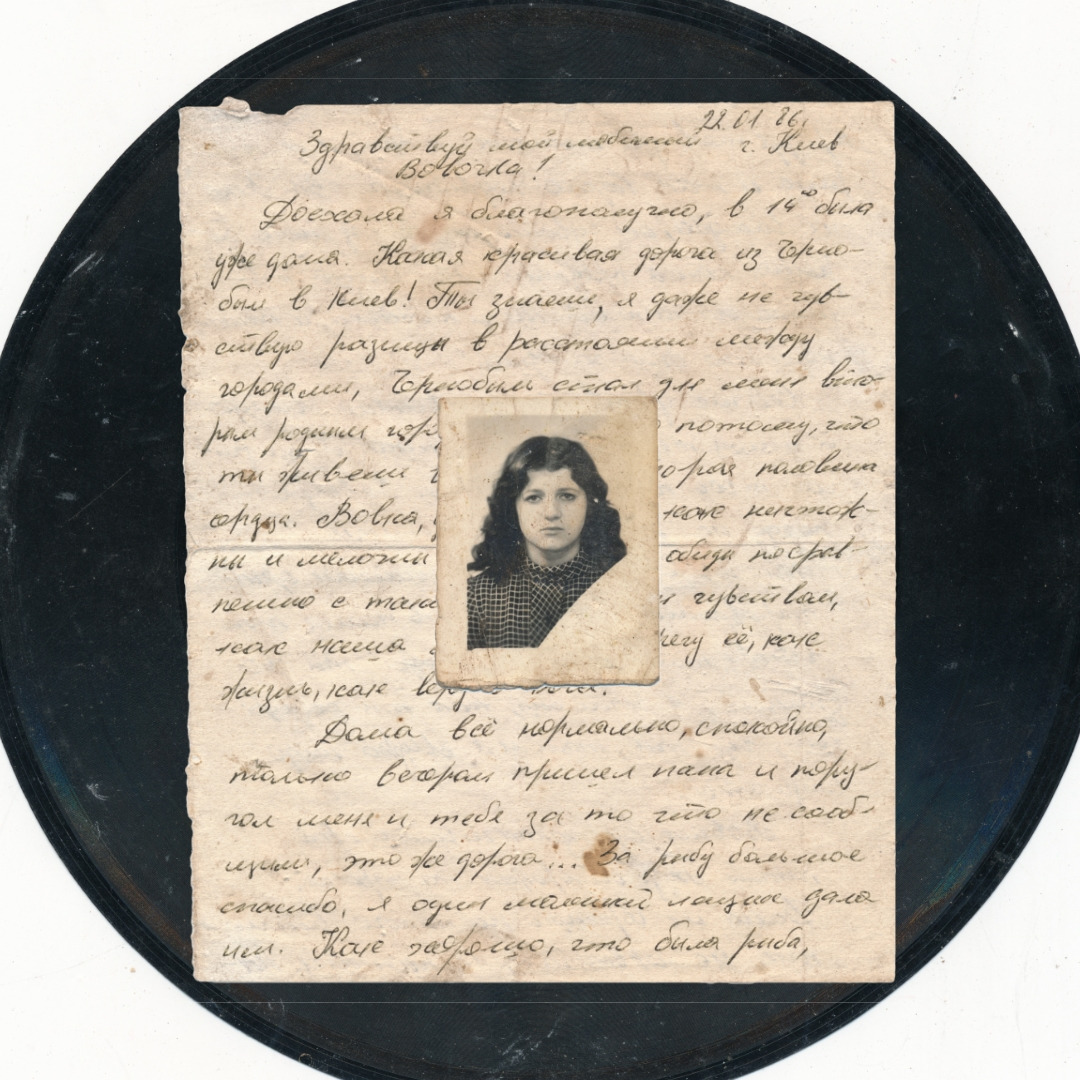 22.01 86.
Здравствуй мой любимый г. Киев
Вовочка!
Доехала я благополучно, в 14⁰⁰ была
уже дома. Какая красивая дорога из Черно-
быля в Киев! Ты знаешь, я даже не чув-
ствую разницы в расстоянии между
городами, Чернобыль стал для меня вто-
рым родным потому, что
ты живешь половина
сердца. Вовка, как ничтож-
ны и мелочны обиды по срав-
нению с чувствам,
как наша её, как
жизнь, как
Дома всё нормально, спокойно,
только вечером пришел папа и пору-
гал меня и тебя за то что не сооб-
щили, это же дорога... За рыбу большое
спасибо, я один маленький лащик дала
им. Как хорошо, что была рыба,